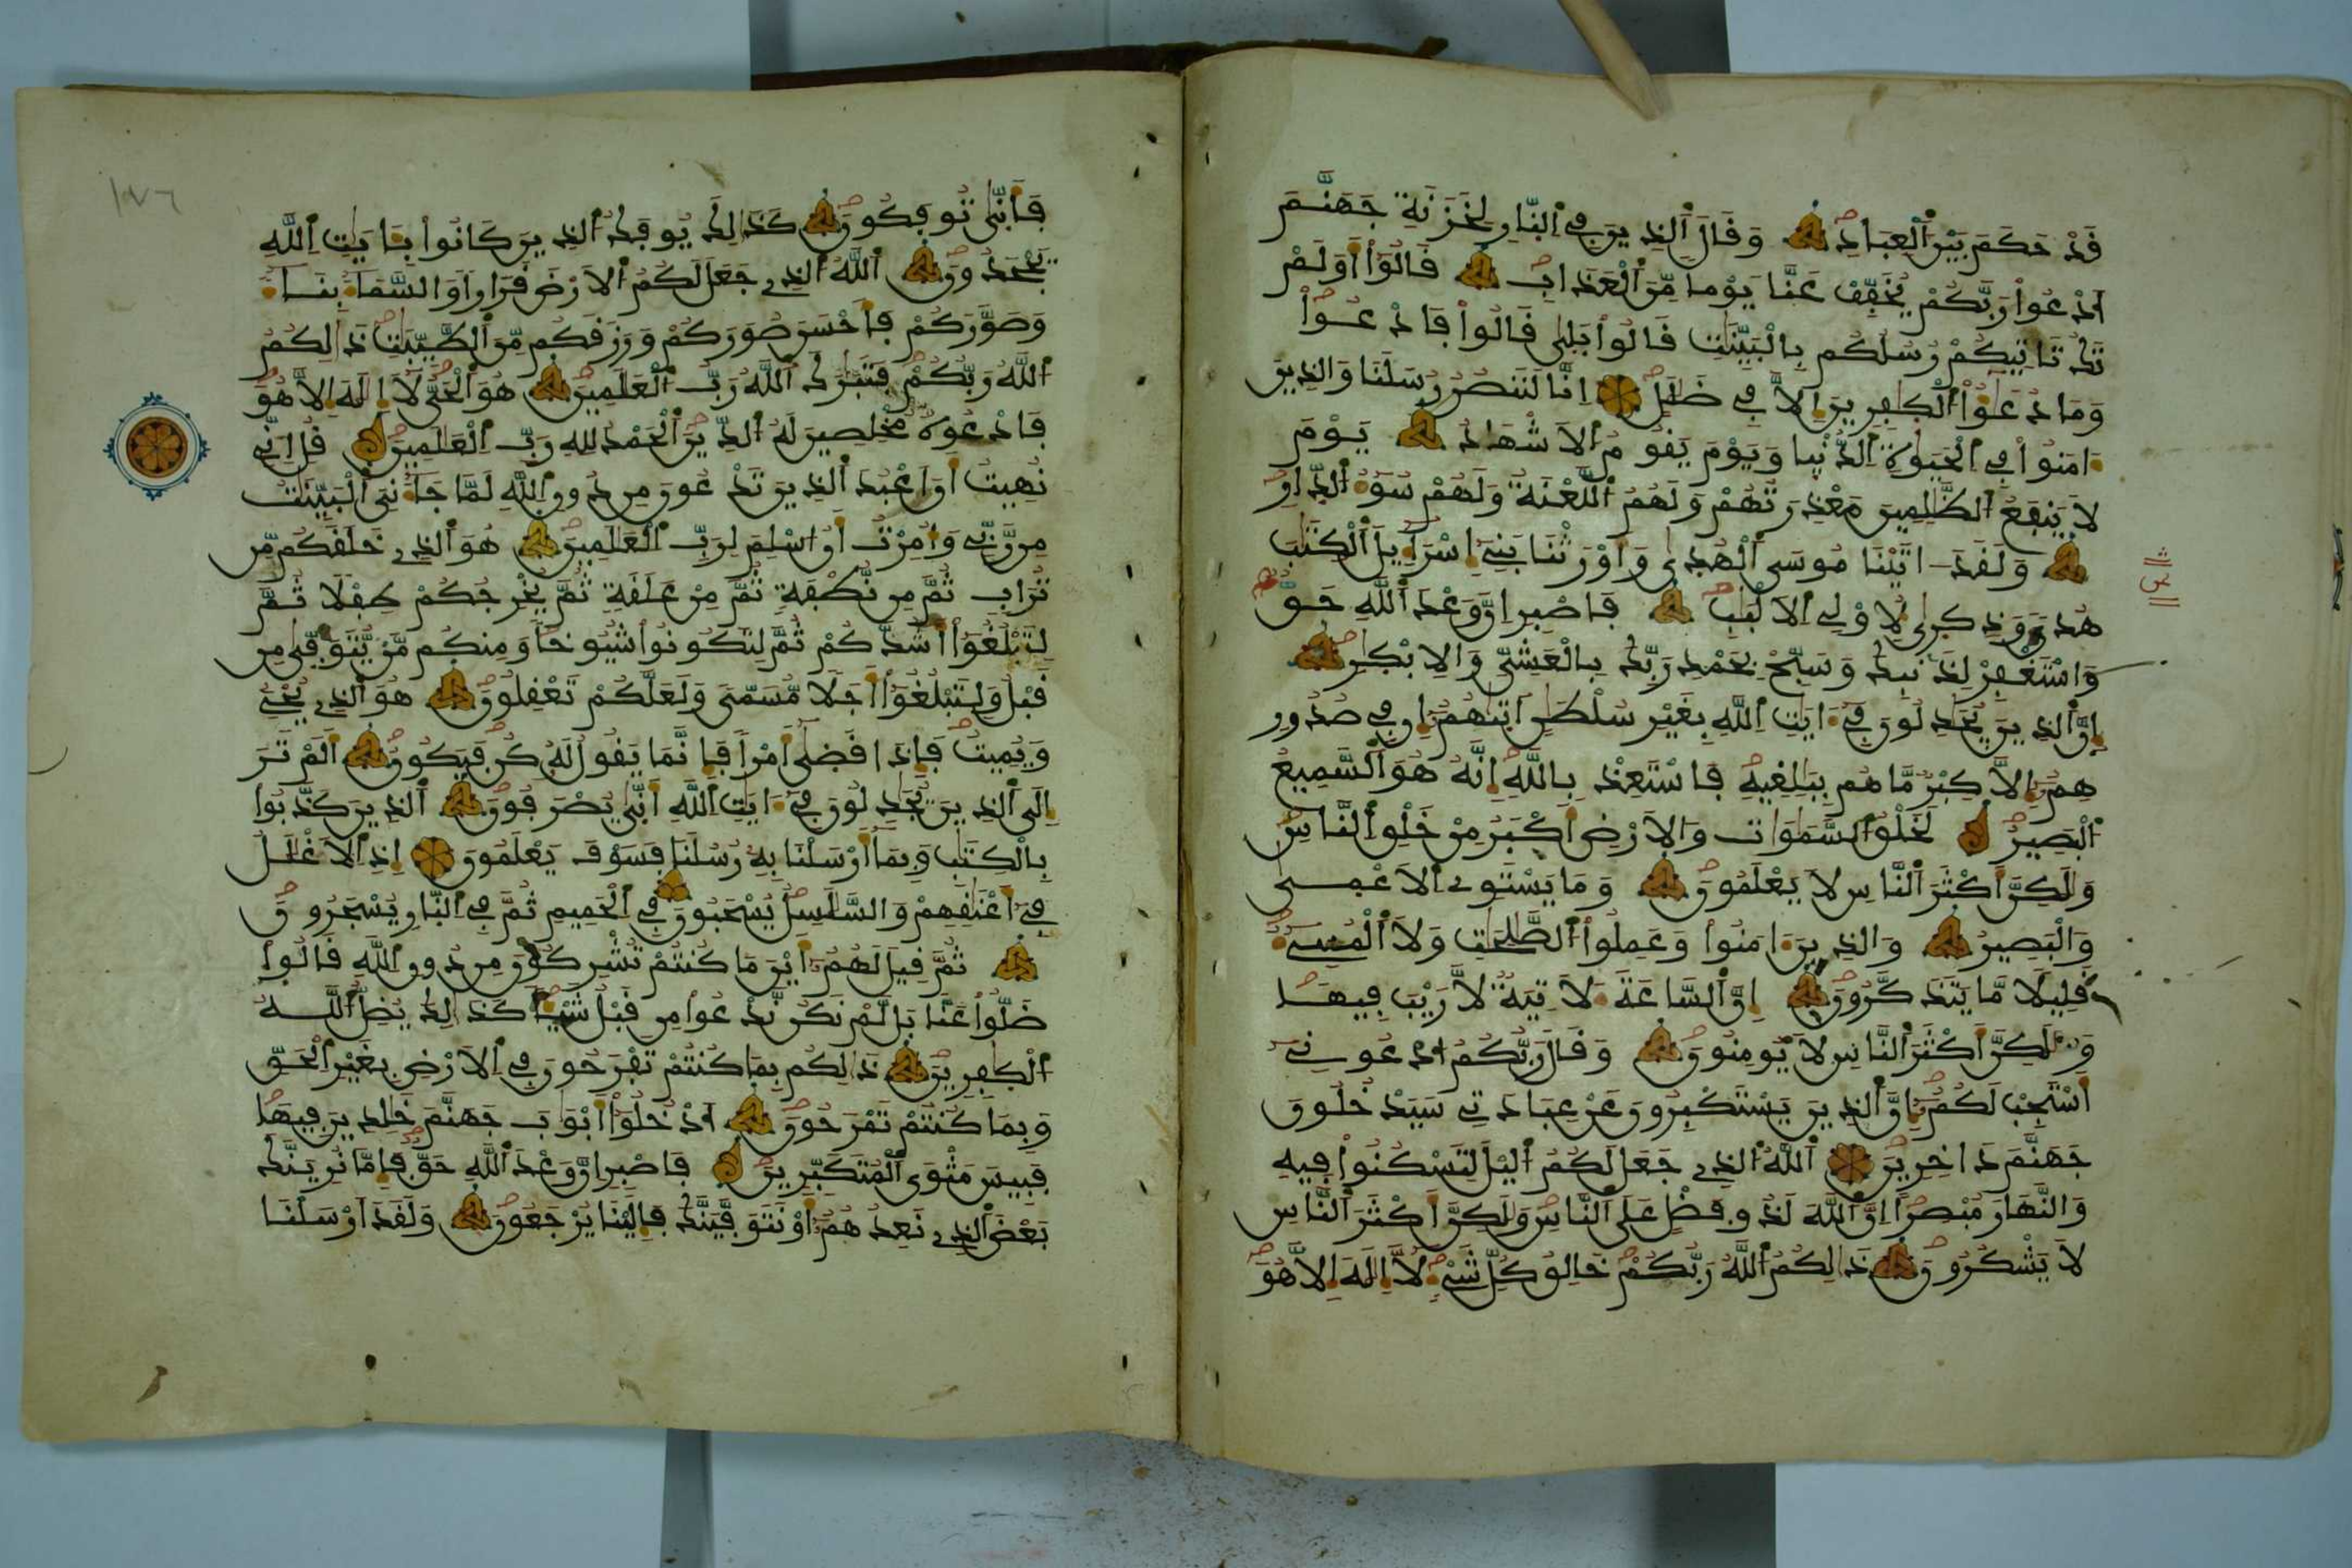 قَدْ حَكَمَ بَيْنَ اَ۬لْعِبَادِ وَقَالَ اَ۬لذِينَ فِے اِ۬لنّ۪ارِ لِخَزَنَةِ جَهَنَّمَ
اَ۟دْعُواْ رَبَّكُمْ يُخَفِّفْ عَنَّا يَوْماٗ مِّنَ اَ۬لْعَذَابِ قَالُوٓاْ أَوَلَمْ
تَكُ تَاتِيكُمْ رُسُلُكُم بِالْبَيِّنَٰتِ قَالُواْ بَل۪يٰ قَالُواْ فَادْعُواْ
وَمَا دُعَٰٓؤُاْ اُ۬لْكٰ۪فِرِينَ إِلاَّ فِے ضَلَٰلٍ اِنَّا لَنَنصُرُ رُسُلَنَا وَالذِينَ
ءَامَنُواْ فِے اِ۬لْحَيَوٰةِ اِ۬لدُّنْي۪ا وَيَوْمَ يَقُومُ اُ۬لَاشْهَٰدُ يَوْمَ
لَا يَنفَعُ اُ۬لظَّٰلِمِينَ مَعْذِرَتُهُمْ وَلَهُمُ اُ۬للَّعْنَةُ وَلَهُمْ سُوٓءُ اُ۬لدّ۪ارِ
وَلَقَدَ اٰتَيْنَا مُوسَي اَ۬لْهُد۪يٰ وَأَوْرَثْنَا بَنِےٓ إِسْرَآءِيلَ اَ۬لْكِتَٰبَ
هُديٗ وَذِكْر۪يٰ لِأُوْلِے اِ۬لَالْبَٰبِ فَاصْبِرِ اِنَّ وَعْدَ اَ۬للَّهِ حَقّٞ
وَاسْتَغْفِرْ لِذَنۢبِكَ وَسَبِّحْ بِحَمْدِ رَبِّكَ بِالْعَشِيِّ وَالِابْكٰ۪رِ
إِنَّ اَ۬لذِينَ يُجَٰدِلُونَ فِےٓ ءَايَٰتِ اِ۬للَّهِ بِغَيْرِ سُلْطَٰنٍ اَت۪يٰهُمُۥٓ إِن فِے صُدُورِ
هِمُۥٓ إِلاَّ كِبْرٞ مَّا هُم بِبَٰلِغِيهِ فَاسْتَعِذْ بِاللَّهِ إِنَّهُۥ هُوَ اَ۬لسَّمِيعُ
اُ۬لْبَصِيرُ لَخَلْقُ اُ۬لسَّمَٰوَٰتِ وَالَارْضِ أَكْبَرُ مِنْ خَلْقِ اِ۬لنَّاسِ
وَلَٰكِنَّ أَكْثَرَ اَ۬لنَّاسِ لَا يَعْلَمُونَ وَمَا يَسْتَوِے اِ۬لَاعْم۪يٰ
وَالْبَصِيرُ وَالذِينَ ءَامَنُواْ وَعَمِلُواْ اُ۬لصَّٰلِحَٰتِ وَلَا اَ۬لْمُسِےٓءُ
قَلِيلاٗ مَّا يَتَذَكَّرُونَ إِنَّ اَ۬لسَّاعَةَ ءَلَاتِيَةٞ لَّا رَيْبَ فِيهَا
وَلَٰكِنَّ أَكْثَرَ اَ۬لنَّاسِ لَا يُومِنُونَ وَقَالَ رَبُّكُمُ اُ۟دْعُونِےٓ
أَسْتَجِبْ لَكُمُۥٓ إِنَّ اَ۬لذِينَ يَسْتَكْبِرُونَ عَنْ عِبَادَتِے سَيَدْخُلُونَ
جَهَنَّمَ دَاخِرِينَ اَ۬للَّهُ اُ۬لذِے جَعَلَ لَكُمُ اُ۬ليْلَ لِتَسْكُنُواْ فِيهِ
وَالنَّهَارَ مُبْصِراً اِنَّ اَ۬للَّهَ لَذُو فَضْلٍ عَلَي اَ۬لنَّاسِ وَلَٰكِنَّ أَكْثَرَ اَ۬لنَّاسِ
لَا يَشْكُرُونَ ذَٰلِكُمُ اُ۬للَّهُ رَبُّكُمْ خَٰلِقُ كُلِّ شَےْءٖ لَّآ إِلَٰهَ إِلَّا هُوَ
فَأَنّ۪يٰ تُوفَكُونَ كَذَٰلِكَ يُوفَكُ اُ۬لذِينَ كَانُواْ بِـَٔايَٰتِ اِ۬للَّهِ
يَجْحَدُونَ اَ۬للَّهُ اُ۬لذِے جَعَلَ لَكُمُ اُ۬لَارْضَ قَرَاراٗ وَالسَّمَآءَ بِنَآءٗ
وَصَوَّرَكُمْ فَأَحْسَنَ صُوَرَكُمْ وَرَزَقَكُم مِّنَ اَ۬لطَّيِّبَٰتِ ذَٰلِكُمُ
اُ۬للَّهُ رَبُّكُمْ فَتَبَٰرَكَ اَ۬للَّهُ رَبُّ اُ۬لْعَٰلَمِينَ هُوَ اَ۬لْحَيُّ لَآ إِلَٰهَ إِلَّا هُوَ
فَادْعُوهُ مُخْلِصِينَ لَهُ اُ۬لدِّينَ اَ۬لْحَمْدُ لِلهِ رَبِّ اِ۬لْعَٰلَمِينَ قُلِ اِنِّے
نُهِيتُ أَنَ اَعْبُدَ اَ۬لذِينَ تَدْعُونَ مِن دُونِ اِ۬للَّهِ لَمَّا جَآءَنِيَ اَ۬لْبَيِّنَٰتُ
مِن رَّبِّے وَأُمِرْتُ أَنُ اسْلِمَ لِرَبِّ اِ۬لْعَٰلَمِينَ هُوَ اَ۬لذِے خَلَقَكُم مِّن
تُرَابٖ ثُمَّ مِن نُّطْفَةٖ ثُمَّ مِنْ عَلَقَةٖ ثُمَّ يُخْرِجُكُمْ طِفْلاٗ ثُمَّ
لِتَبْلُغُوٓاْ أَشُدَّكُمْ ثُمَّ لِتَكُونُواْ شُيُوخاٗ وَمِنكُم مَّنْ يُّتَوَفّ۪يٰ مِن
قَبْلُ وَلِتَبْلُغُوٓاْ أَجَلاٗ مُّسَمّيٗ وَلَعَلَّكُمْ تَعْقِلُونَ هُوَ اَ۬لذِے يُحْيِے
وَيُمِيتُ فَإِذَا قَض۪يٰٓ أَمْراٗ فَإِنَّمَا يَقُولُ لَهُۥ كُن فَيَكُونُ أَلَمْ تَرَ
إِلَي اَ۬لذِينَ يُجَٰدِلُونَ فِےٓ ءَايَٰتِ اِ۬للَّهِ أَنّ۪يٰ يُصْرَفُونَ اَ۬لذِينَ كَذَّبُواْ
بِالْكِتَٰبِ وَبِمَآ أَرْسَلْنَا بِهِۦ رُسُلَنَا فَسَوْفَ يَعْلَمُونَ إِذِ اِ۬لَاغْلَٰلُ
فِےٓ أَعْنَٰقِهِمْ وَالسَّلَٰسِلُ يُسْحَبُونَ فِے اِ۬لْحَمِيمِ ثُمَّ فِے اِ۬لنّ۪ارِ يُسْجَرُونَ
ثُمَّ قِيلَ لَهُمُۥٓ أَيْنَ مَا كُنتُمْ تُشْرِكُونَ مِن دُونِ اِ۬للَّهِ قَالُواْ
ضَلُّواْ عَنَّا بَل لَّمْ نَكُن نَّدْعُواْ مِن قَبْلُ شَيْـٔاٗ كَذَٰلِكَ يُضِلُّ اُ۬للَّهُ
اُ۬لْكٰ۪فِرِينَ ذَٰلِكُم بِمَا كُنتُمْ تَفْرَحُونَ فِے اِ۬لَارْضِ بِغَيْرِ اِ۬لْحَقِّ
وَبِمَا كُنتُمْ تَمْرَحُونَ اَ۟دْخُلُوٓاْ أَبْوَٰبَ جَهَنَّمَ خَٰلِدِينَ فِيهَا
فَبِيسَ مَثْوَي اَ۬لْمُتَكَبِّرِينَ فَاصْبِرِ اِنَّ وَعْدَ اَ۬للَّهِ حَقّٞ فَإِمَّا نُرِيَنَّكَ
بَعْضَ اَ۬لذِے نَعِدُهُمُۥٓ أَوْ نَتَوَفَّيَنَّكَ فَإِلَيْنَا يُرْجَعُونَ وَلَقَدَ اَرْسَلْنَا
١٧٦